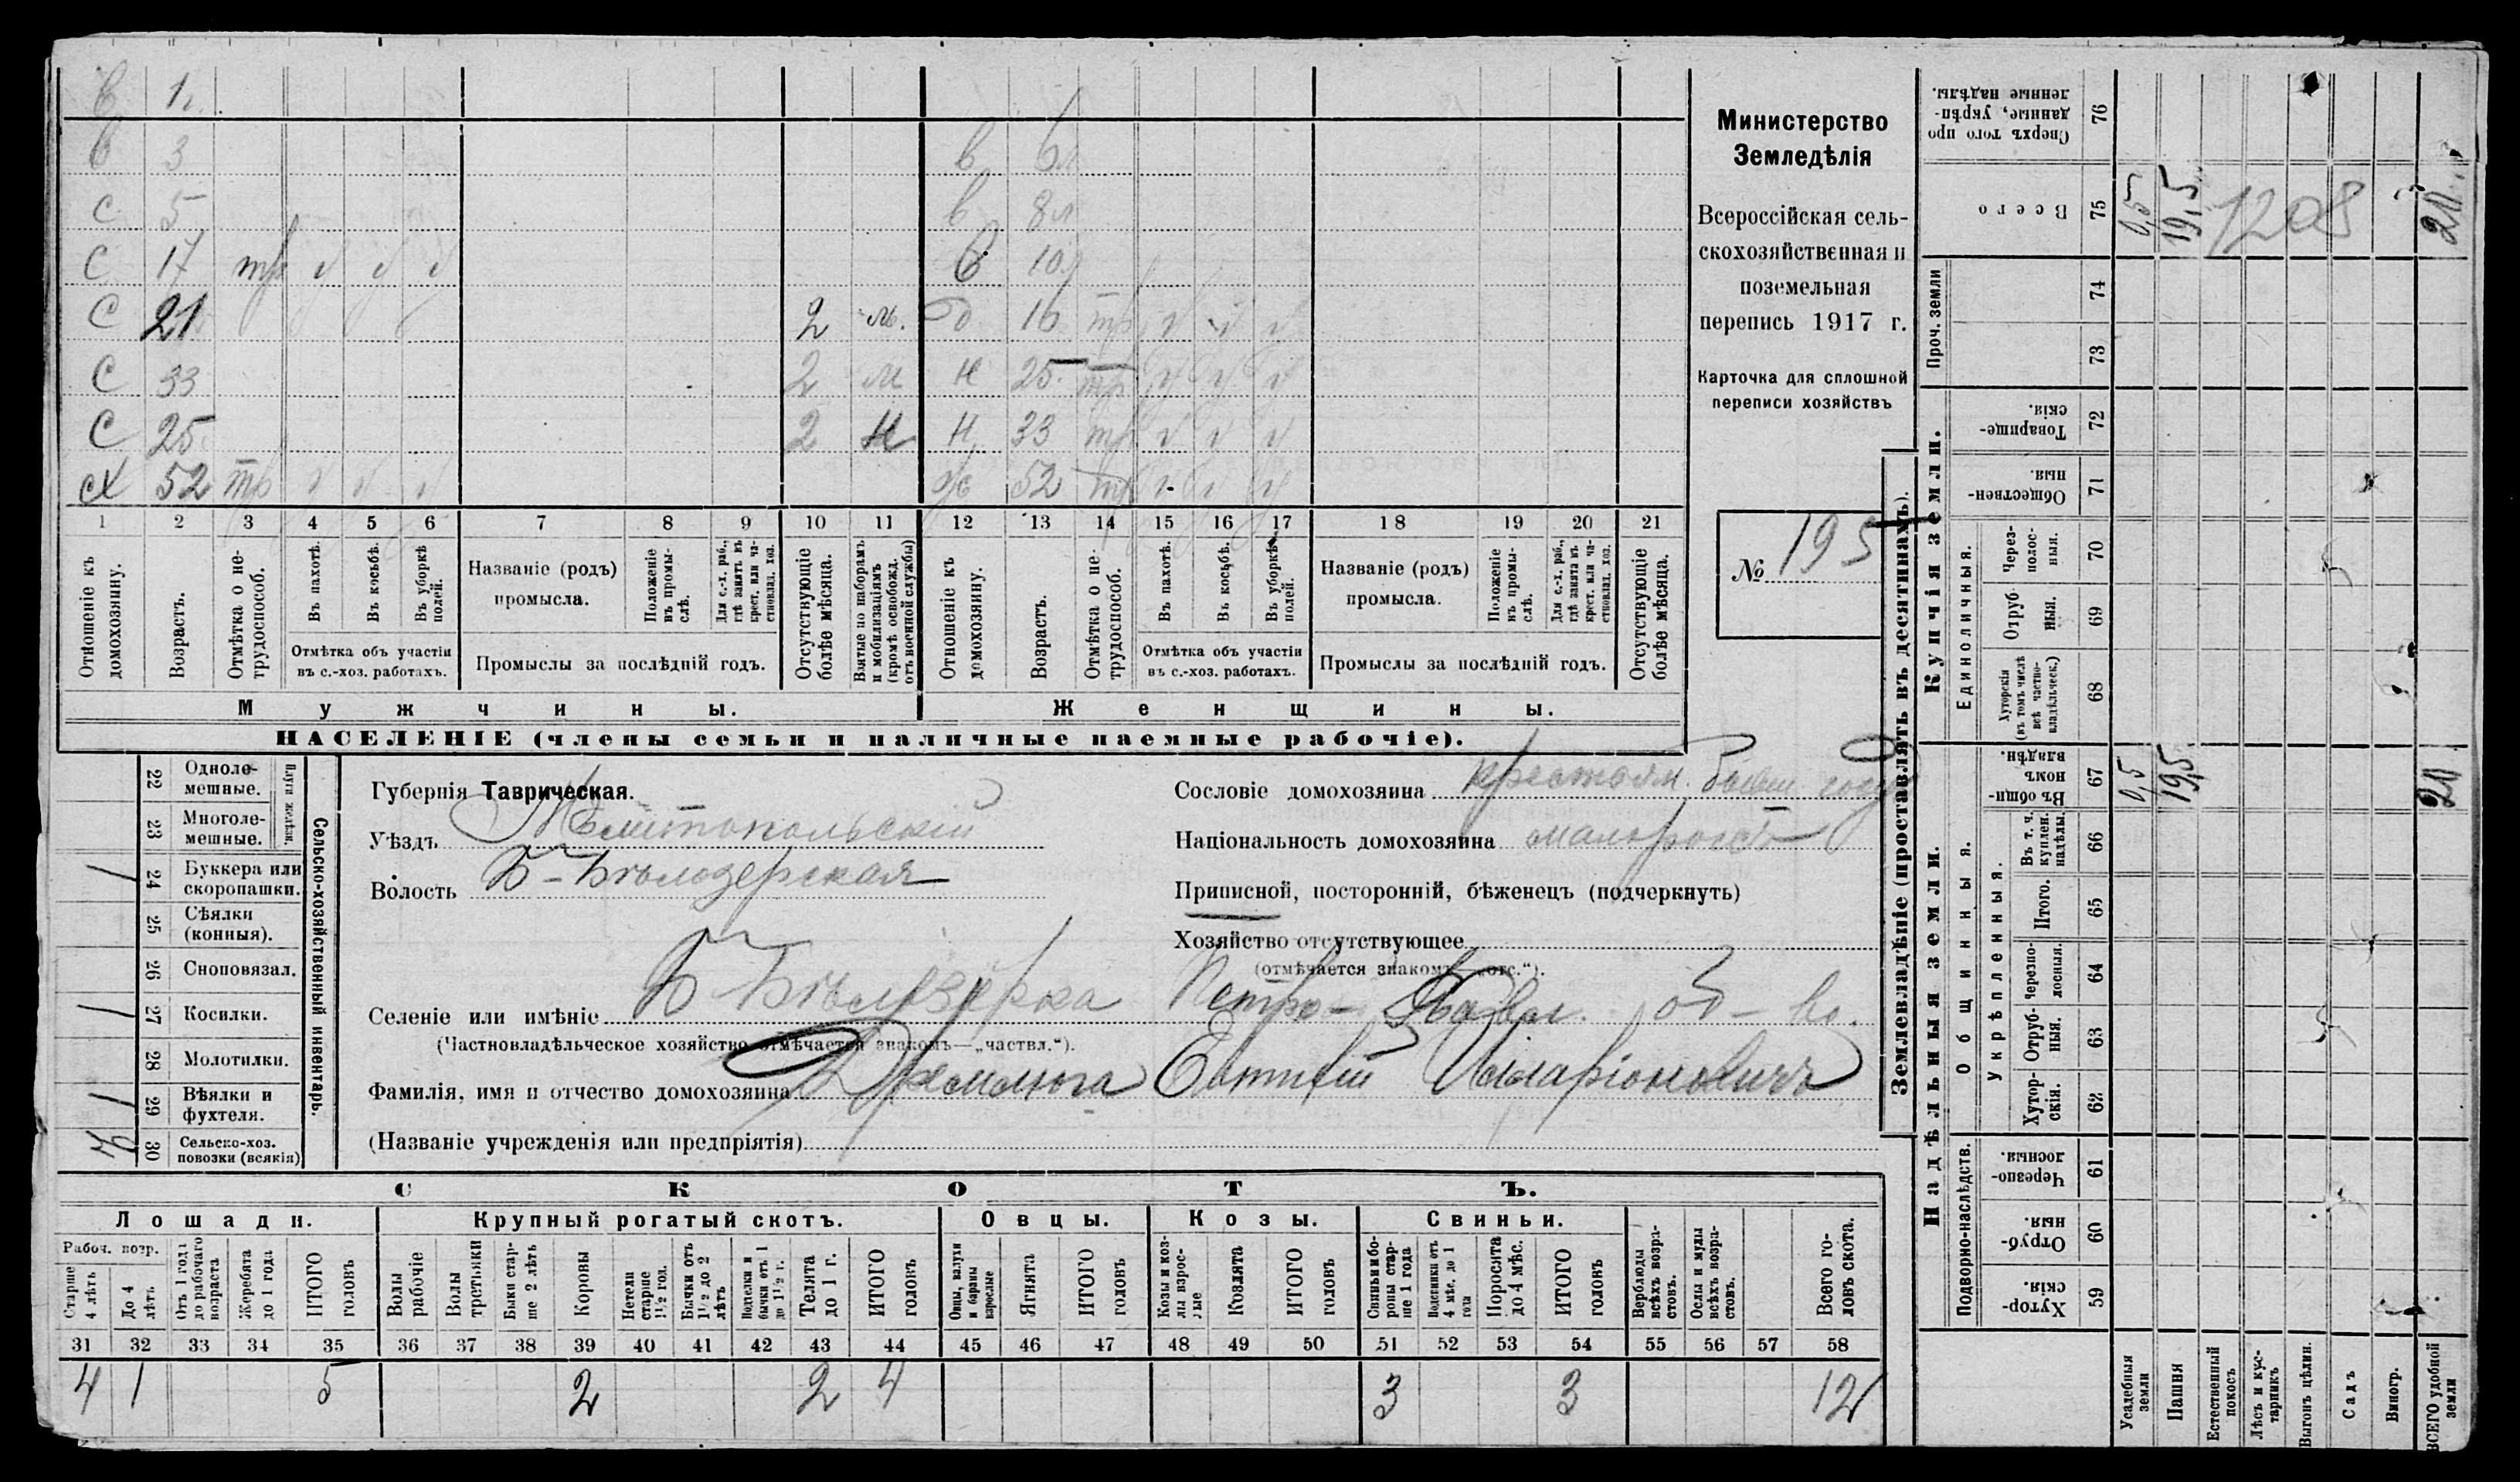 в 1г.
в 3 в 6л
с 5 в 8л
с 17 тр √ √ √ в 10л
с 21 2 м. д 16 тр √ √ √
с 33 2 м н 25 тр √ √ √
с 25 2 н н 33 тр √ √ √
сх 52 тр √ √ √ ж 52 тр √ √ √
1 2 3 4 5 6 7 8 9 10 11 12 13 14 15 16 17 18 19 20 21
Отношеніе къ домохозяину.
Возрастъ.
Отмѣтка о нетрудоспособ.
Въ пахотѣ.
Въ косьбѣ.
Въ уборкѣ полей.
Отмѣтка объ участіи
въ с.-хоз. работахъ.
Названіе (родъ)
промысла.
Положеніе въ промыслѣ.
Для с.-х. раб., гдѣ занятъ въ крест. или частновлад. хоз.
Промыслы за послѣдній годъ.
Отсутствующіе болѣе мѣсяца.
Взятые по наборамъ и мобилизаціямъ (кромѣ освобожд. отъ военной службы)
Отношеніе къ домохозяину.
Возрастъ.
Отмѣтка о нетрудоспособ.
Въ пахотѣ.
Въ косьбѣ.
Въ уборкѣ полей.
Отмѣтка объ участіи
въ с.-хоз. работахъ.
Названіе (родъ)
промысла.
Положеніе въ промыслѣ.
Для с.-х. раб., гдѣ занята въ крест. или частновлад. хоз.
Промыслы за послѣдній годъ.
Отсутствующіе болѣе мѣсяца.
Мужчины.
Женщины.
НАСЕЛЕНІЕ (члены семьи и наличные наемные рабочіе).
Министерство
Земледѣлія
Всероссійская сель-
скохозяйственная и
поземельная
перепись 1917 г.
Карточка для сплошной
переписи хозяйствъ
№ 195
Сельско-хозяйственный инвентарь.
Плуги желѣзн.
22 Одноле-
мешные.
23 Многоле-
мешные.
1 24 Буккера или
скоропашки.
25 Сѣялки
(конныя).
26 Сноповязал.
1 27 Косилки.
28 Молотилки.
1 29 Вѣялки и
фухтеля.
30 Сельско-хоз.
повозки (всякія)
Губернія Таврическая.
Уѣздъ Мелитопольскій
Волость Б-Бѣлозерская
Сословіе домохозяина крестьян. бывш. госуд
Національность домохозяина малоросъ
Приписной, посторонній, бѣженецъ (подчеркнуть)
Хозяйство отсутствующее
(отмѣчается знакомъ „отс.“).
Селеніе или имѣніе Б Бѣлозерка Петро-Павл. об-во.
(Частновладѣльческое хозяйство отмѣчается знакомъ—„частвл.“).
Фамилія, имя и отчество домохозяина Дремлюга Евтихій Илларіоновичъ
(Названіе учрежденія или предпріятія)
СКОТЪ.
Лошади.
Крупный рогатый скотъ.
Овцы.
Козы.
Свиньи.
Рабоч. возр.
Старше 4 лѣтъ
До 4 лѣтъ
Отъ 1 года до рабочаго возраста
Жеребята до 1 года
ИТОГО головъ
Волы рабочіе
Волы третьяки
Быки старше 2 лѣтъ
Коровы
Нетели старше 1½ год.
Бычки отъ 1½ до 2 лѣтъ
Подтелки и бычки отъ 1 до 1½ г.
Телята до 1 г.
ИТОГО головъ
Овцы, валухи и бараны взрослые
Ягнята
ИТОГО головъ
Козы и козлы взрослые
Козлята
ИТОГО головъ
Свиньи и боровы старше 1 года
Подсвинки отъ 4 мѣс. до 1 года
Поросята до 4 мѣс.
ИТОГО головъ
Верблюды всѣхъ возрастовъ.
Ослы и мулы всѣхъ возрастовъ.
Всего головъ скота.
31 32 33 34 35 36 37 38 39 40 41 42 43 44 45 46 47 48 49 50 51 52 53 54 55 56 57 58
4 1 5 2 2 4 3 3 12
Землевладѣніе (проставлять въ десятинахъ).
Надѣльныя земли.
Купчія земли.
Проч. земли
Подворно-наслѣдств.
Общинныя.
Укрѣпленныя.
Единоличныя.
Сверхъ того проданные, укрѣпленные надѣлы. 76
Всего 75 0,5 19,5 1208 20
74
73
Товарищескія. 72
Общественныя 71
Черезполосныя. 70
Отрубныя. 69
Хуторскія (въ томъ числѣ всѣ частновладѣльческ.) 68
Въ общинномъ владѣн. 67 0,5 19,5 20
Въ т. ч. куплен. надѣлы. 66
Итого. 65
Черезполосныя. 64
Отрубныя. 63
Хуторскія. 62
Черезполосныя. 61
Отрубныя. 60
Хуторскія. 59
Усадебныя земли
Пашня
Естественный покосъ
Лѣсъ и кустарникъ
Выгонъ цѣлин.
Садъ
Виногр.
ВСЕГО удобной земли